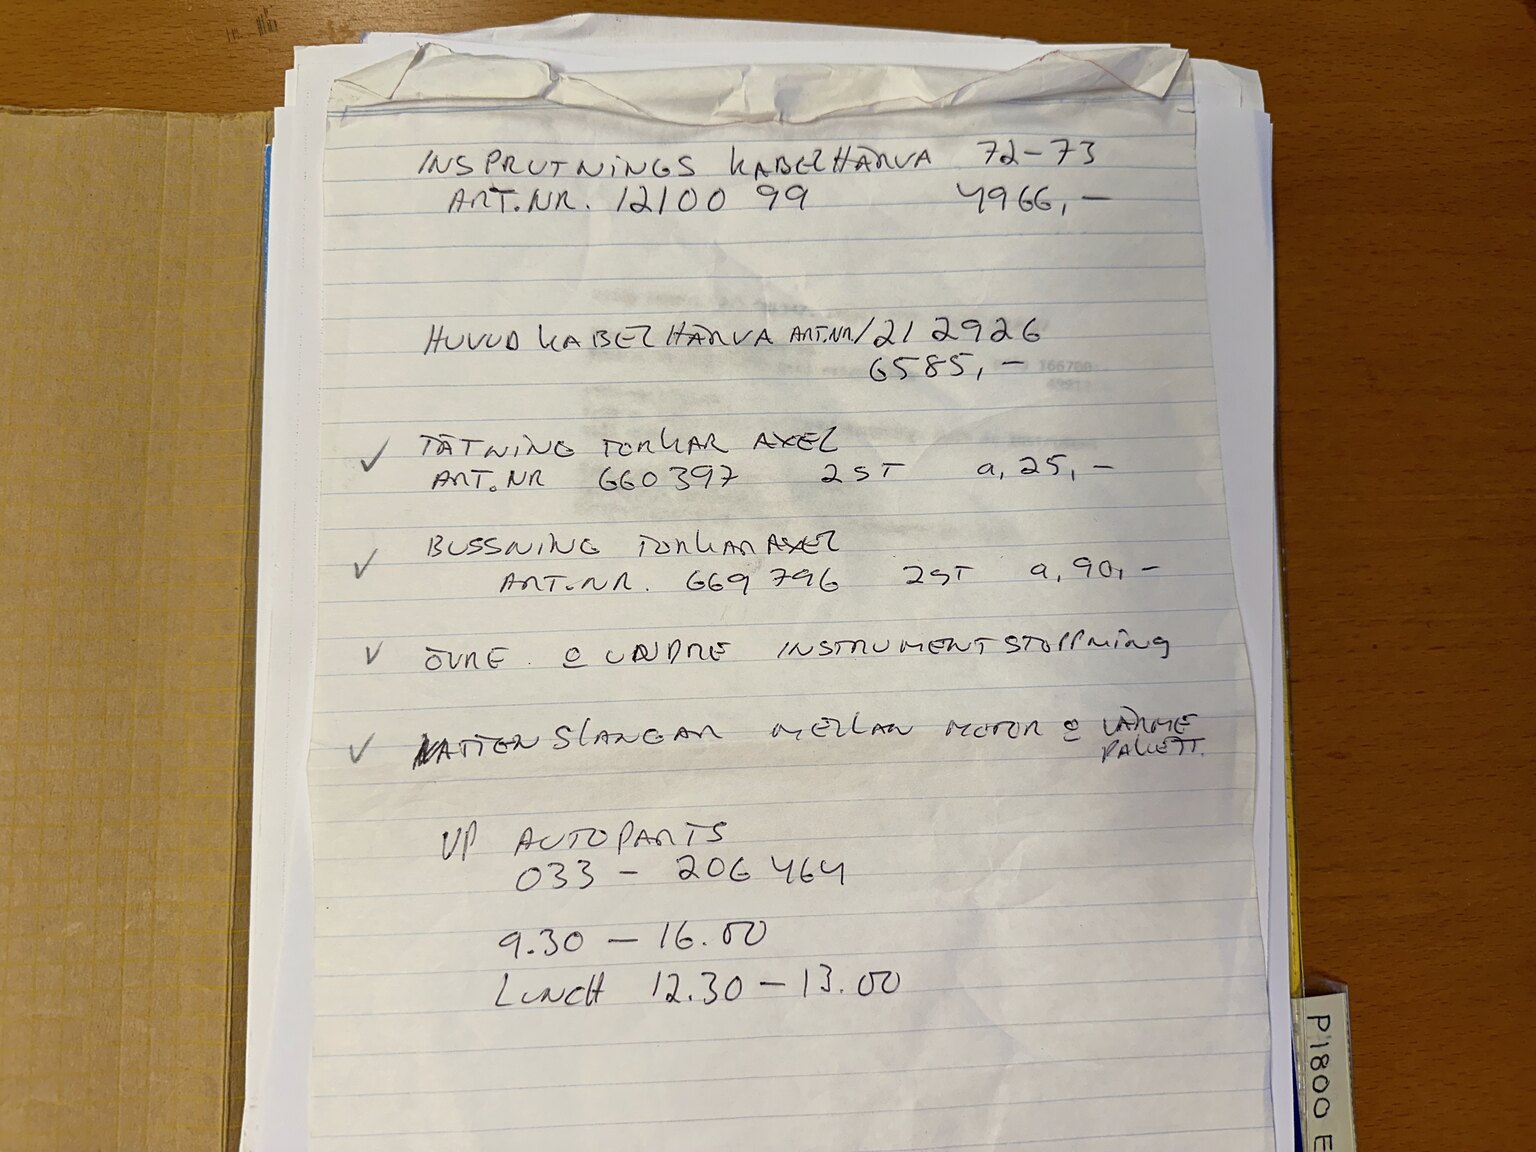 INSPRUTNINGS KABELHÄRVA 72-73
ART.NR. 12100 99 4966,-
HUVUDKABELHÄRVA ART.NR 1212926
6585,-
✓ TÄTNING TORKAR AXEL
ART.NR 660397 2ST a, 25,-
✓ BUSSNING TORKARAXEL
ART.NR. 669796 2ST a, 90,-
✓ ÖVRE o UNDRE INSTRUMENTSTOPPNING
✓ VATTENSLANGAR MELLAN MOTOR o VÄRME
PAKETT.
VP AUTOPARTS
033 - 206 464
9.30 - 16.00
LUNCH 12.30 - 13.00
P1800 E